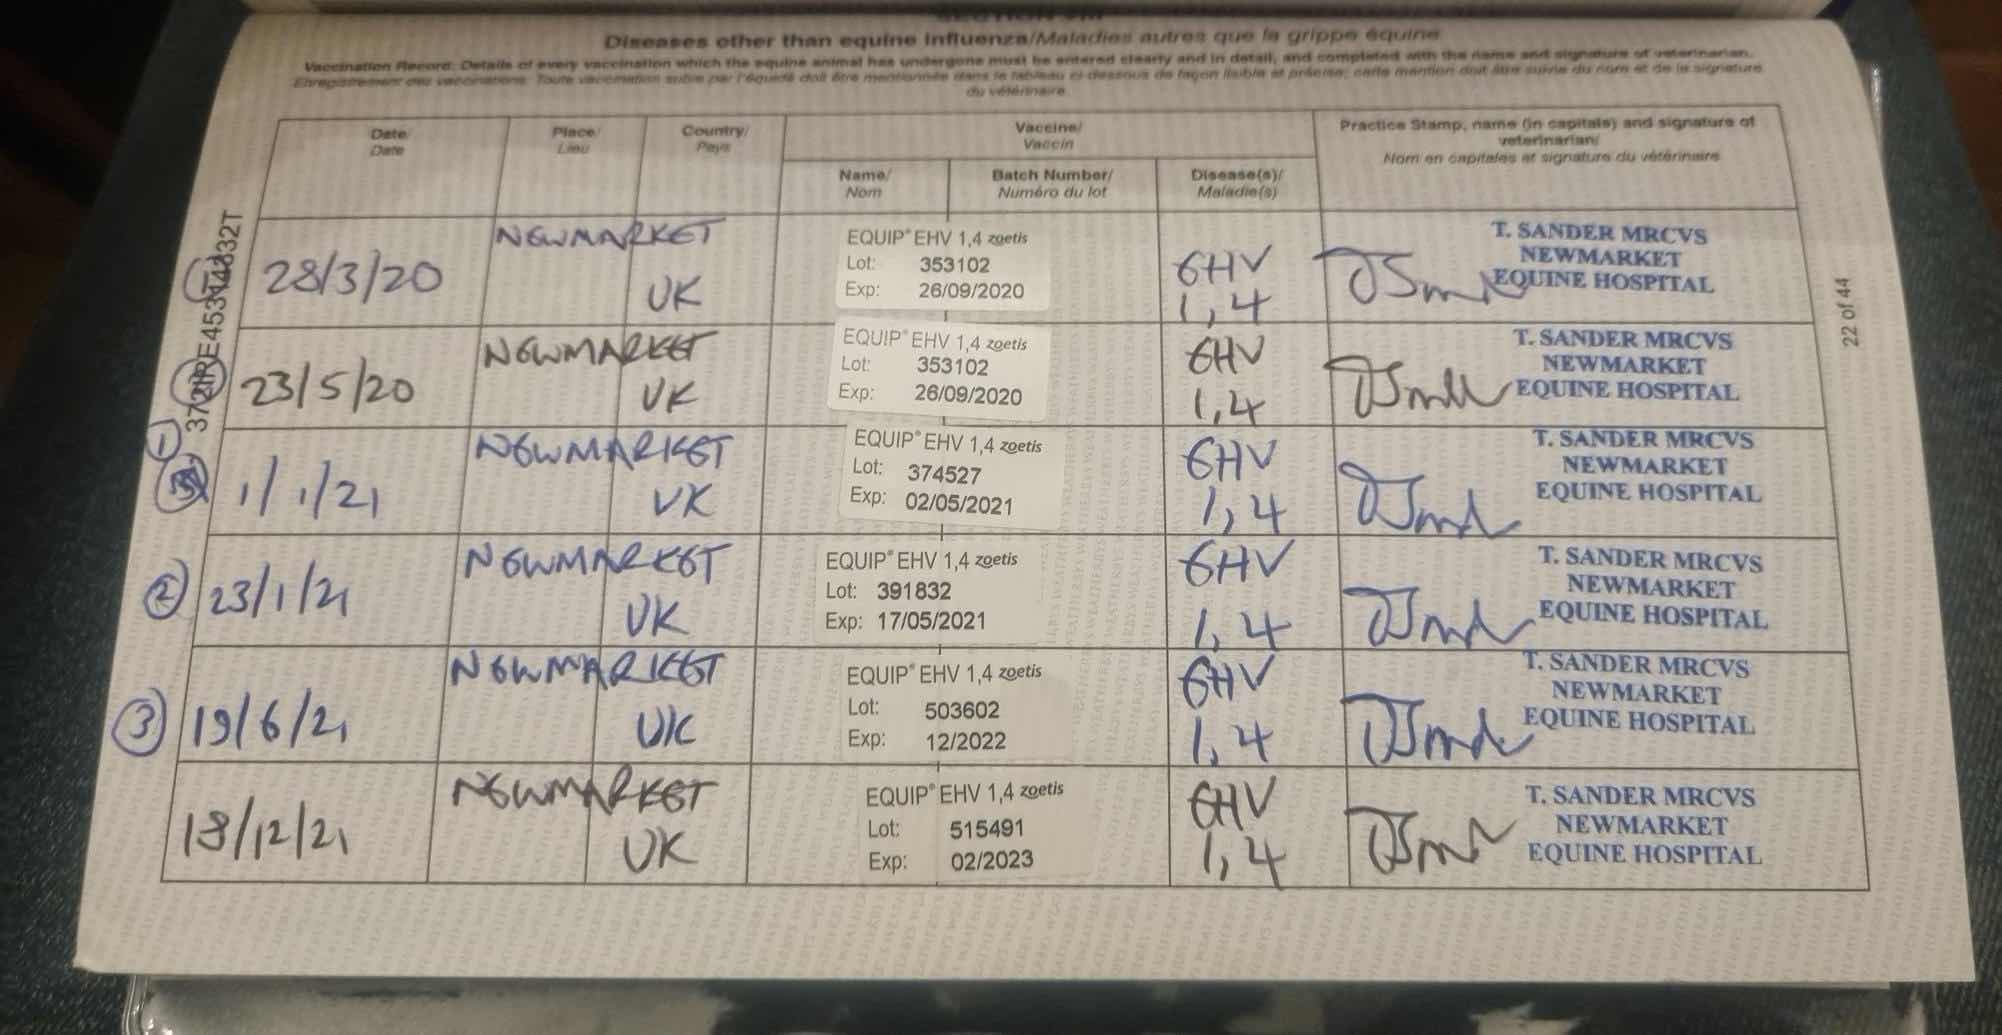 Diseases other than equine influenza/Maladies autres que la grippe équine
Vaccination Record: Details of every vaccination which the equine animal has undergone must be entered clearly and in detail, and completed with the name and signature of veterinarian.
Enregistrement des vaccinations: Toute vaccination subie par l'équidé doit être mentionnée dans le tableau ci-dessous de façon lisible et précise; cette mention doit être suivie du nom et de la signature
du vétérinaire
Date/
Date
Place/
Lieu
Country/
Pays
Vaccine/
Vaccin
Name/
Nom
Batch Number/
Numéro du lot
Disease(s)/
Maladie(s)
Practice Stamp, name (in capitals) and signature of
veterinarian/
Nom en capitales et signature du vétérinaire
28/3/20
NEWMARKET
UK
EQUIP® EHV 1,4 zoetis
Lot: 353102
Exp: 26/09/2020
EHV
1,4
T. SANDER MRCVS
NEWMARKET
EQUINE HOSPITAL
23/5/20
NEWMARKET
UK
EQUIP® EHV 1,4 zoetis
Lot: 353102
Exp: 26/09/2020
EHV
1,4
T. SANDER MRCVS
NEWMARKET
EQUINE HOSPITAL
1
1/1/21
NEWMARKET
UK
EQUIP® EHV 1,4 zoetis
Lot: 374527
Exp: 02/05/2021
EHV
1,4
T. SANDER MRCVS
NEWMARKET
EQUINE HOSPITAL
2
23/1/21
NEWMARKET
UK
EQUIP® EHV 1,4 zoetis
Lot: 391832
Exp: 17/05/2021
EHV
1,4
T. SANDER MRCVS
NEWMARKET
EQUINE HOSPITAL
3
19/6/21
NEWMARKET
UK
EQUIP® EHV 1,4 zoetis
Lot: 503602
Exp: 12/2022
EHV
1,4
T. SANDER MRCVS
NEWMARKET
EQUINE HOSPITAL
18/12/21
NEWMARKET
UK
EQUIP® EHV 1,4 zoetis
Lot: 515491
Exp: 02/2023
EHV
1,4
T. SANDER MRCVS
NEWMARKET
EQUINE HOSPITAL
22 of 44